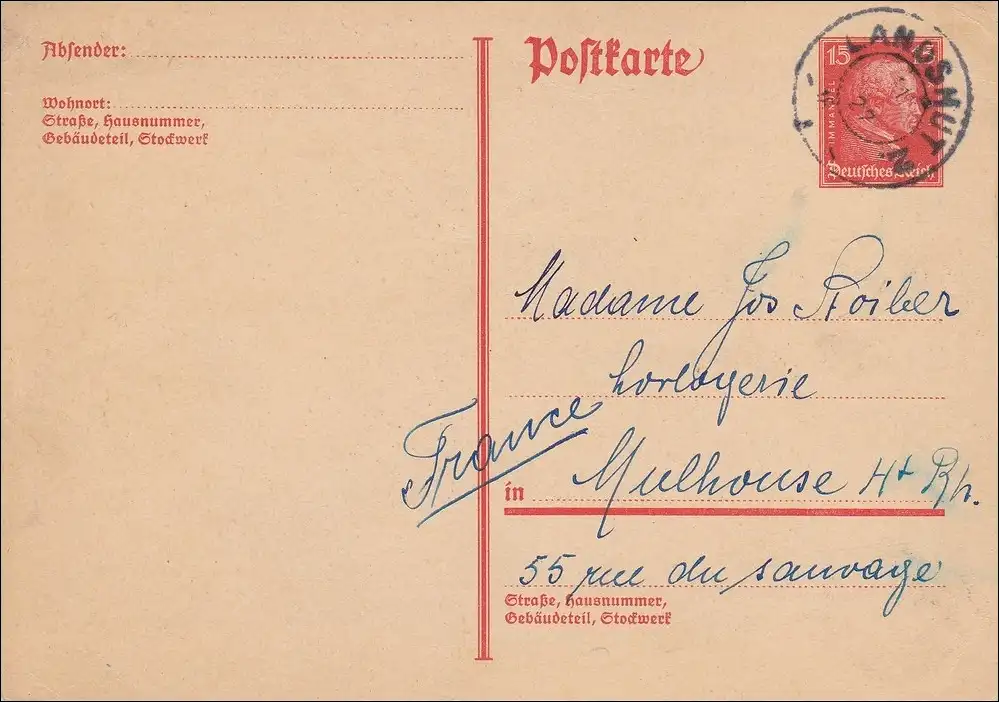 Absender:
Wohnort:
Straße, Hausnummer,
Gebäudeteil, Stockwerk
Postkarte
15
IMMANUEL
Deutsches Reich
LANDSHUT
Madame Jos Roiber
horlogerie
France
in Mulhouse Ht Rh.
55 rue du sauvage
Straße, Hausnummer,
Gebäudeteil, Stockwerk